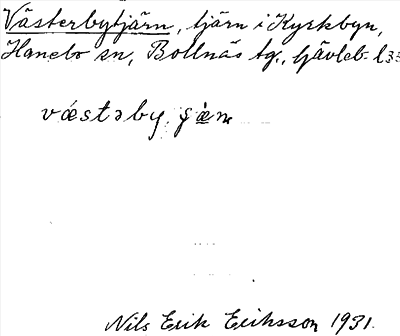 Västerbytjärn, tjärn i Kyrkbyn,
Hanebo sn, Bollnäs tg., Gävleb. l.
væstəby
Nils Erik Eriksson 1931.